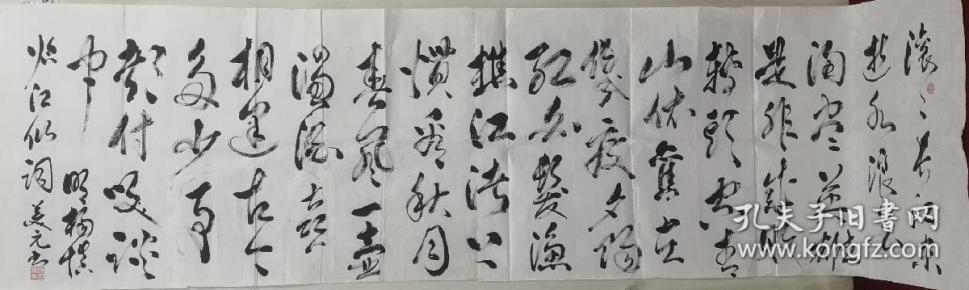 滚〻長江东
逝水浪花
淘尽英雄
是非成敗
轉頭空青
山依舊在
幾度夕陽
红白髮漁
樵江渚上
慣看秋月
春风一壶
濁酒喜
相逢古今
多少事
都付笑谈
中 明楊慎
临江仙词 美元书
孔夫子旧书网
www.kongfz.com